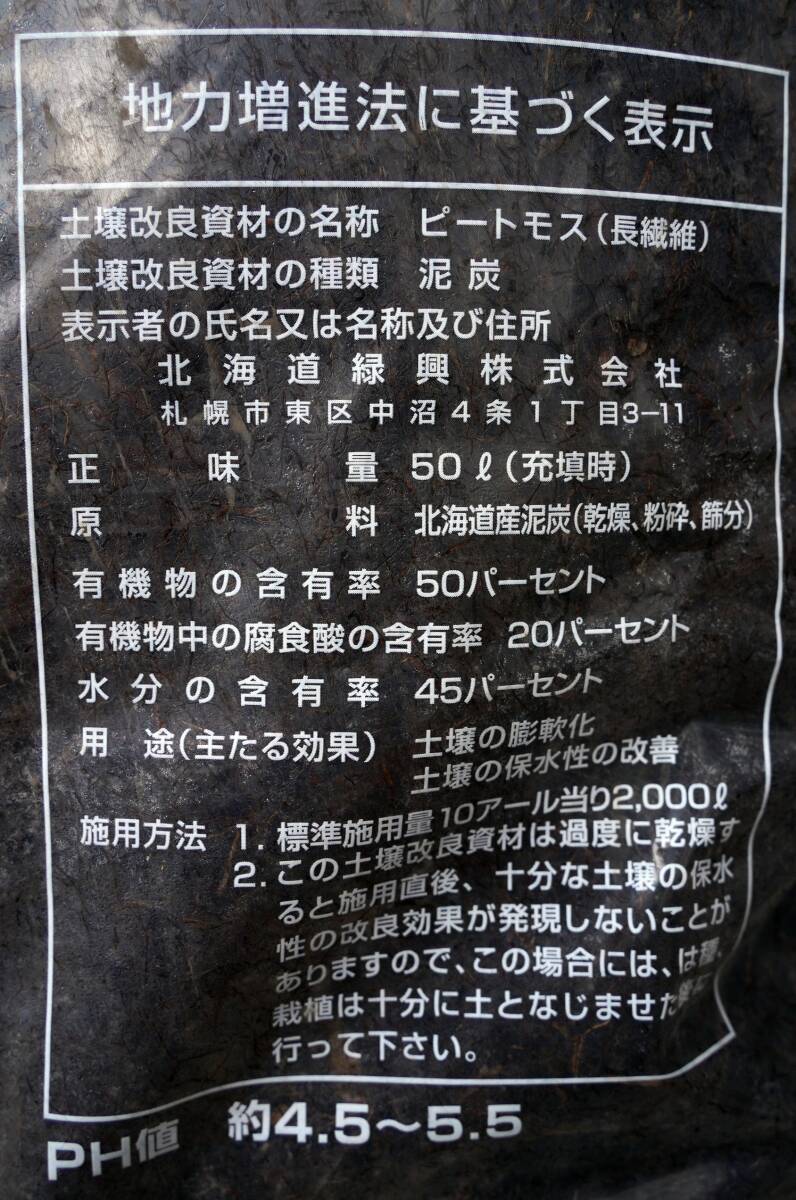 地力増進法に基づく表示
土壌改良資材の名称 ピートモス(長繊維)
土壌改良資材の種類 泥炭
表示者の氏名又は名称及び住所
北海道緑興株式会社
札幌市東区中沼4条1丁目3-11
正味量 50ℓ(充填時)
原料 北海道産泥炭(乾燥、粉砕、篩分)
有機物の含有率 50パーセント
有機物中の腐食酸の含有率 20パーセント
水分の含有率 45パーセント
用途(主たる効果) 土壌の膨軟化
土壌の保水性の改善
施用方法 1. 標準施用量10アール当り2,000ℓ
2. この土壌改良資材は過度に乾燥す
ると施用直後、十分な土壌の保水
性の改良効果が発現しないことが
ありますので、この場合には、は種、
栽植は十分に土となじませた後に
行って下さい。
PH値 約4.5〜5.5